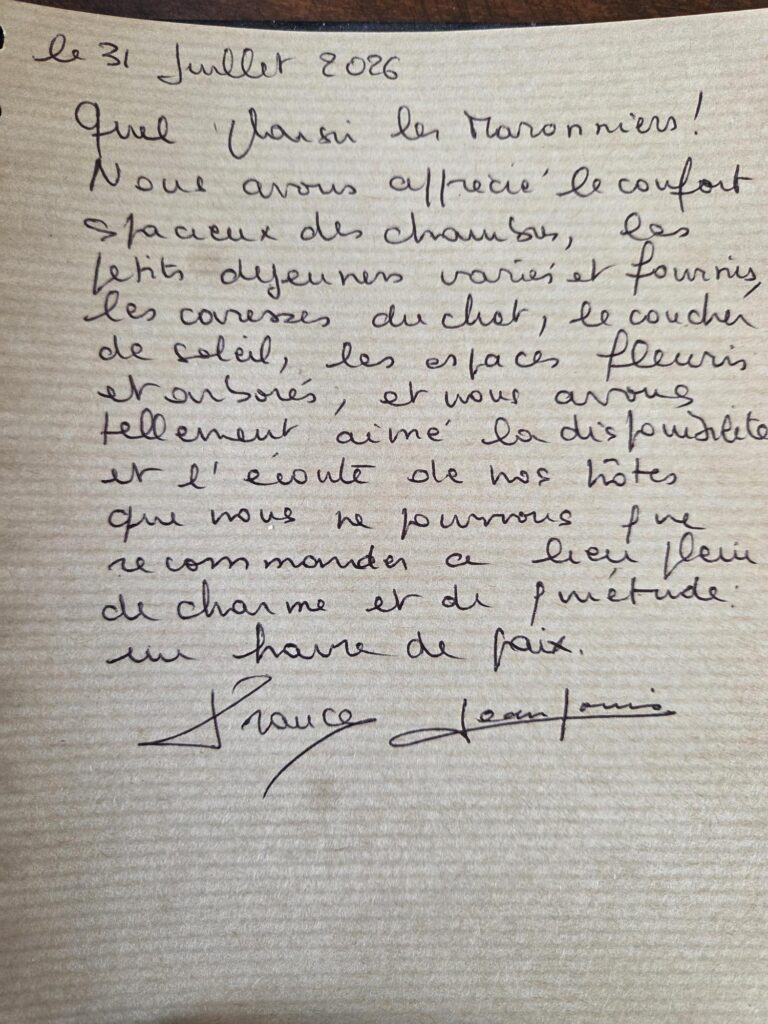 le 31 Juillet 2026
Quel plaisir les Maronniers!
Nous avons apprécié le confort
spacieux des chambres, les
petits dejeuners variés et fournis,
les caresses du chat, le couché
de soleil, les espaces fleuris
et arborés, et nous avons
tellement aimé la disponibilité
et l'écoute de nos hôtes
que nous ne pourrons que
recommander ce lieu plein
de charme et de quiétude.
un havre de paix.
France Jean Louis